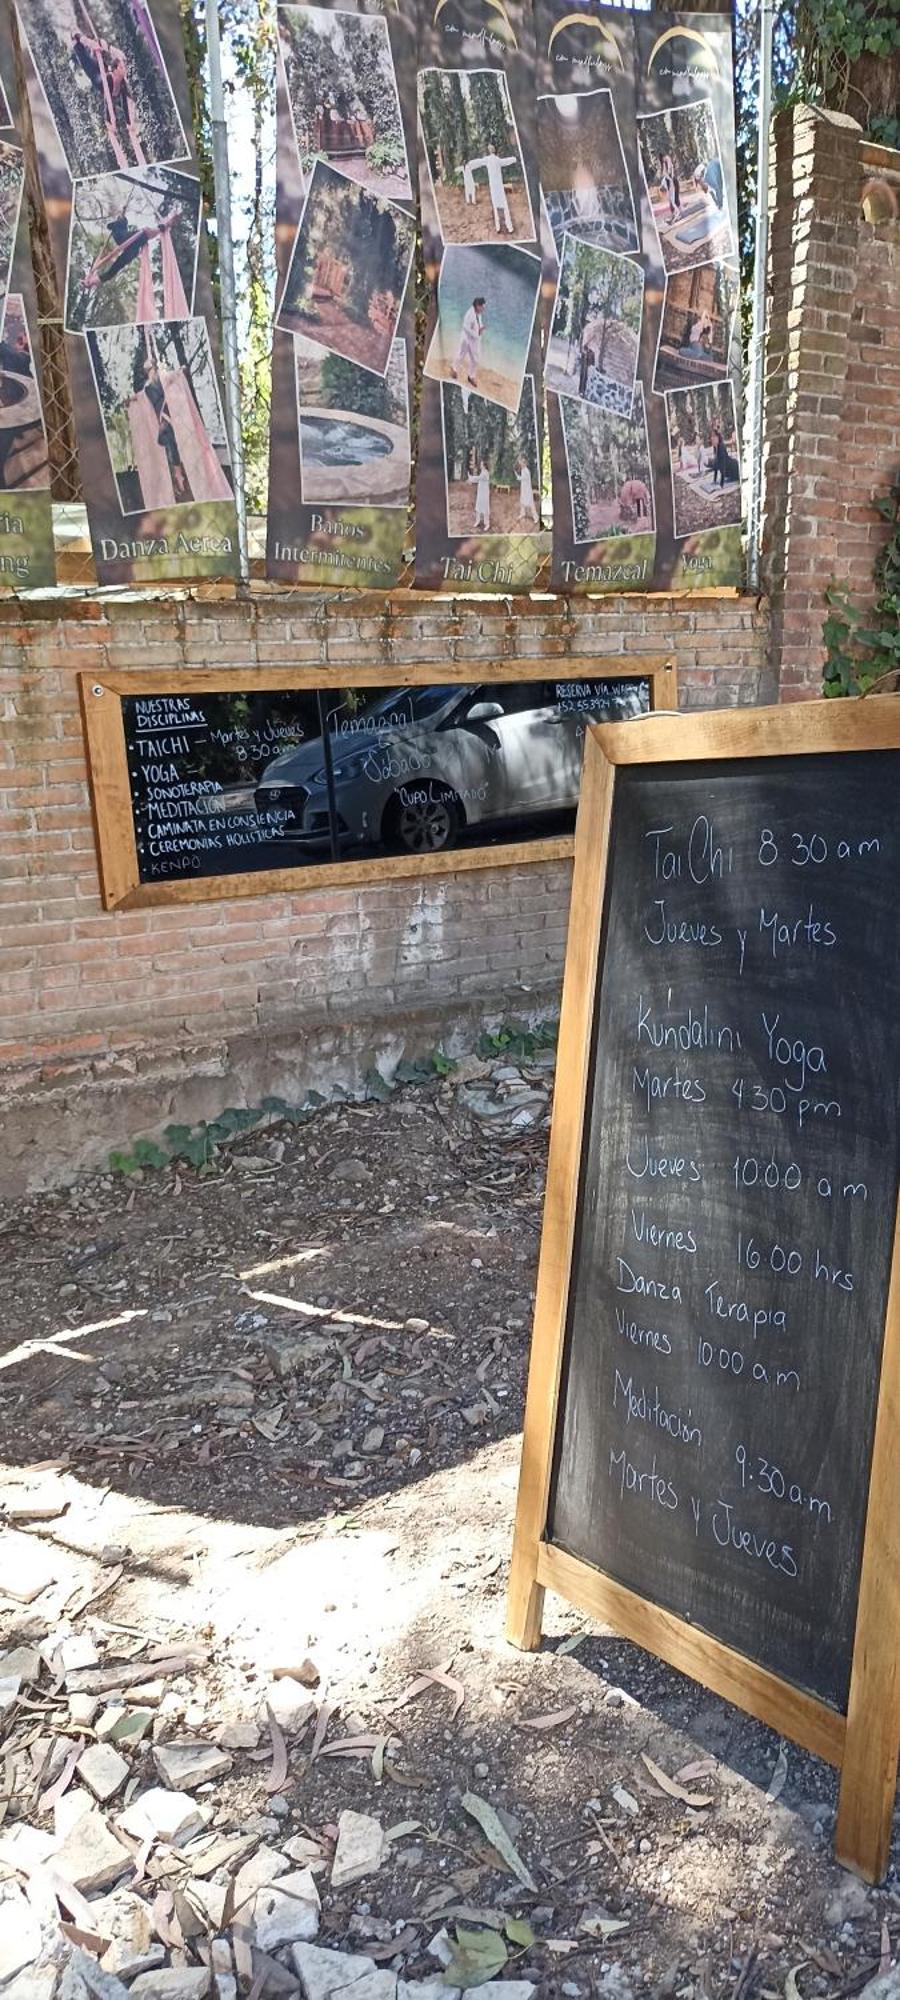 con mindfulness
con mindfulness
con mindfulness
Danza Aerea
Baños
Intermitentes
Tai Chi
Temazcal
Yoga
NUESTRAS
DISCIPLINAS
• TAICHI – Martes y Jueves
8:30 am
• YOGA –
• SONOTERAPIA
• MEDITACIÓN
• CAMINATA EN CONSCIENCIA
• CEREMONIAS HOLISTICAS
• KENPO
Temazcal
Sábado
"CUPO LIMITADO"
RESERVA VÍA
Tai Chi 8:30 am
Jueves y Martes
Kundalini Yoga
Martes 4:30 pm
Jueves 10:00 am
Viernes 16:00 hrs
Danza Terapia
Viernes 10:00 am
Meditación 9:30 a.m
Martes y Jueves